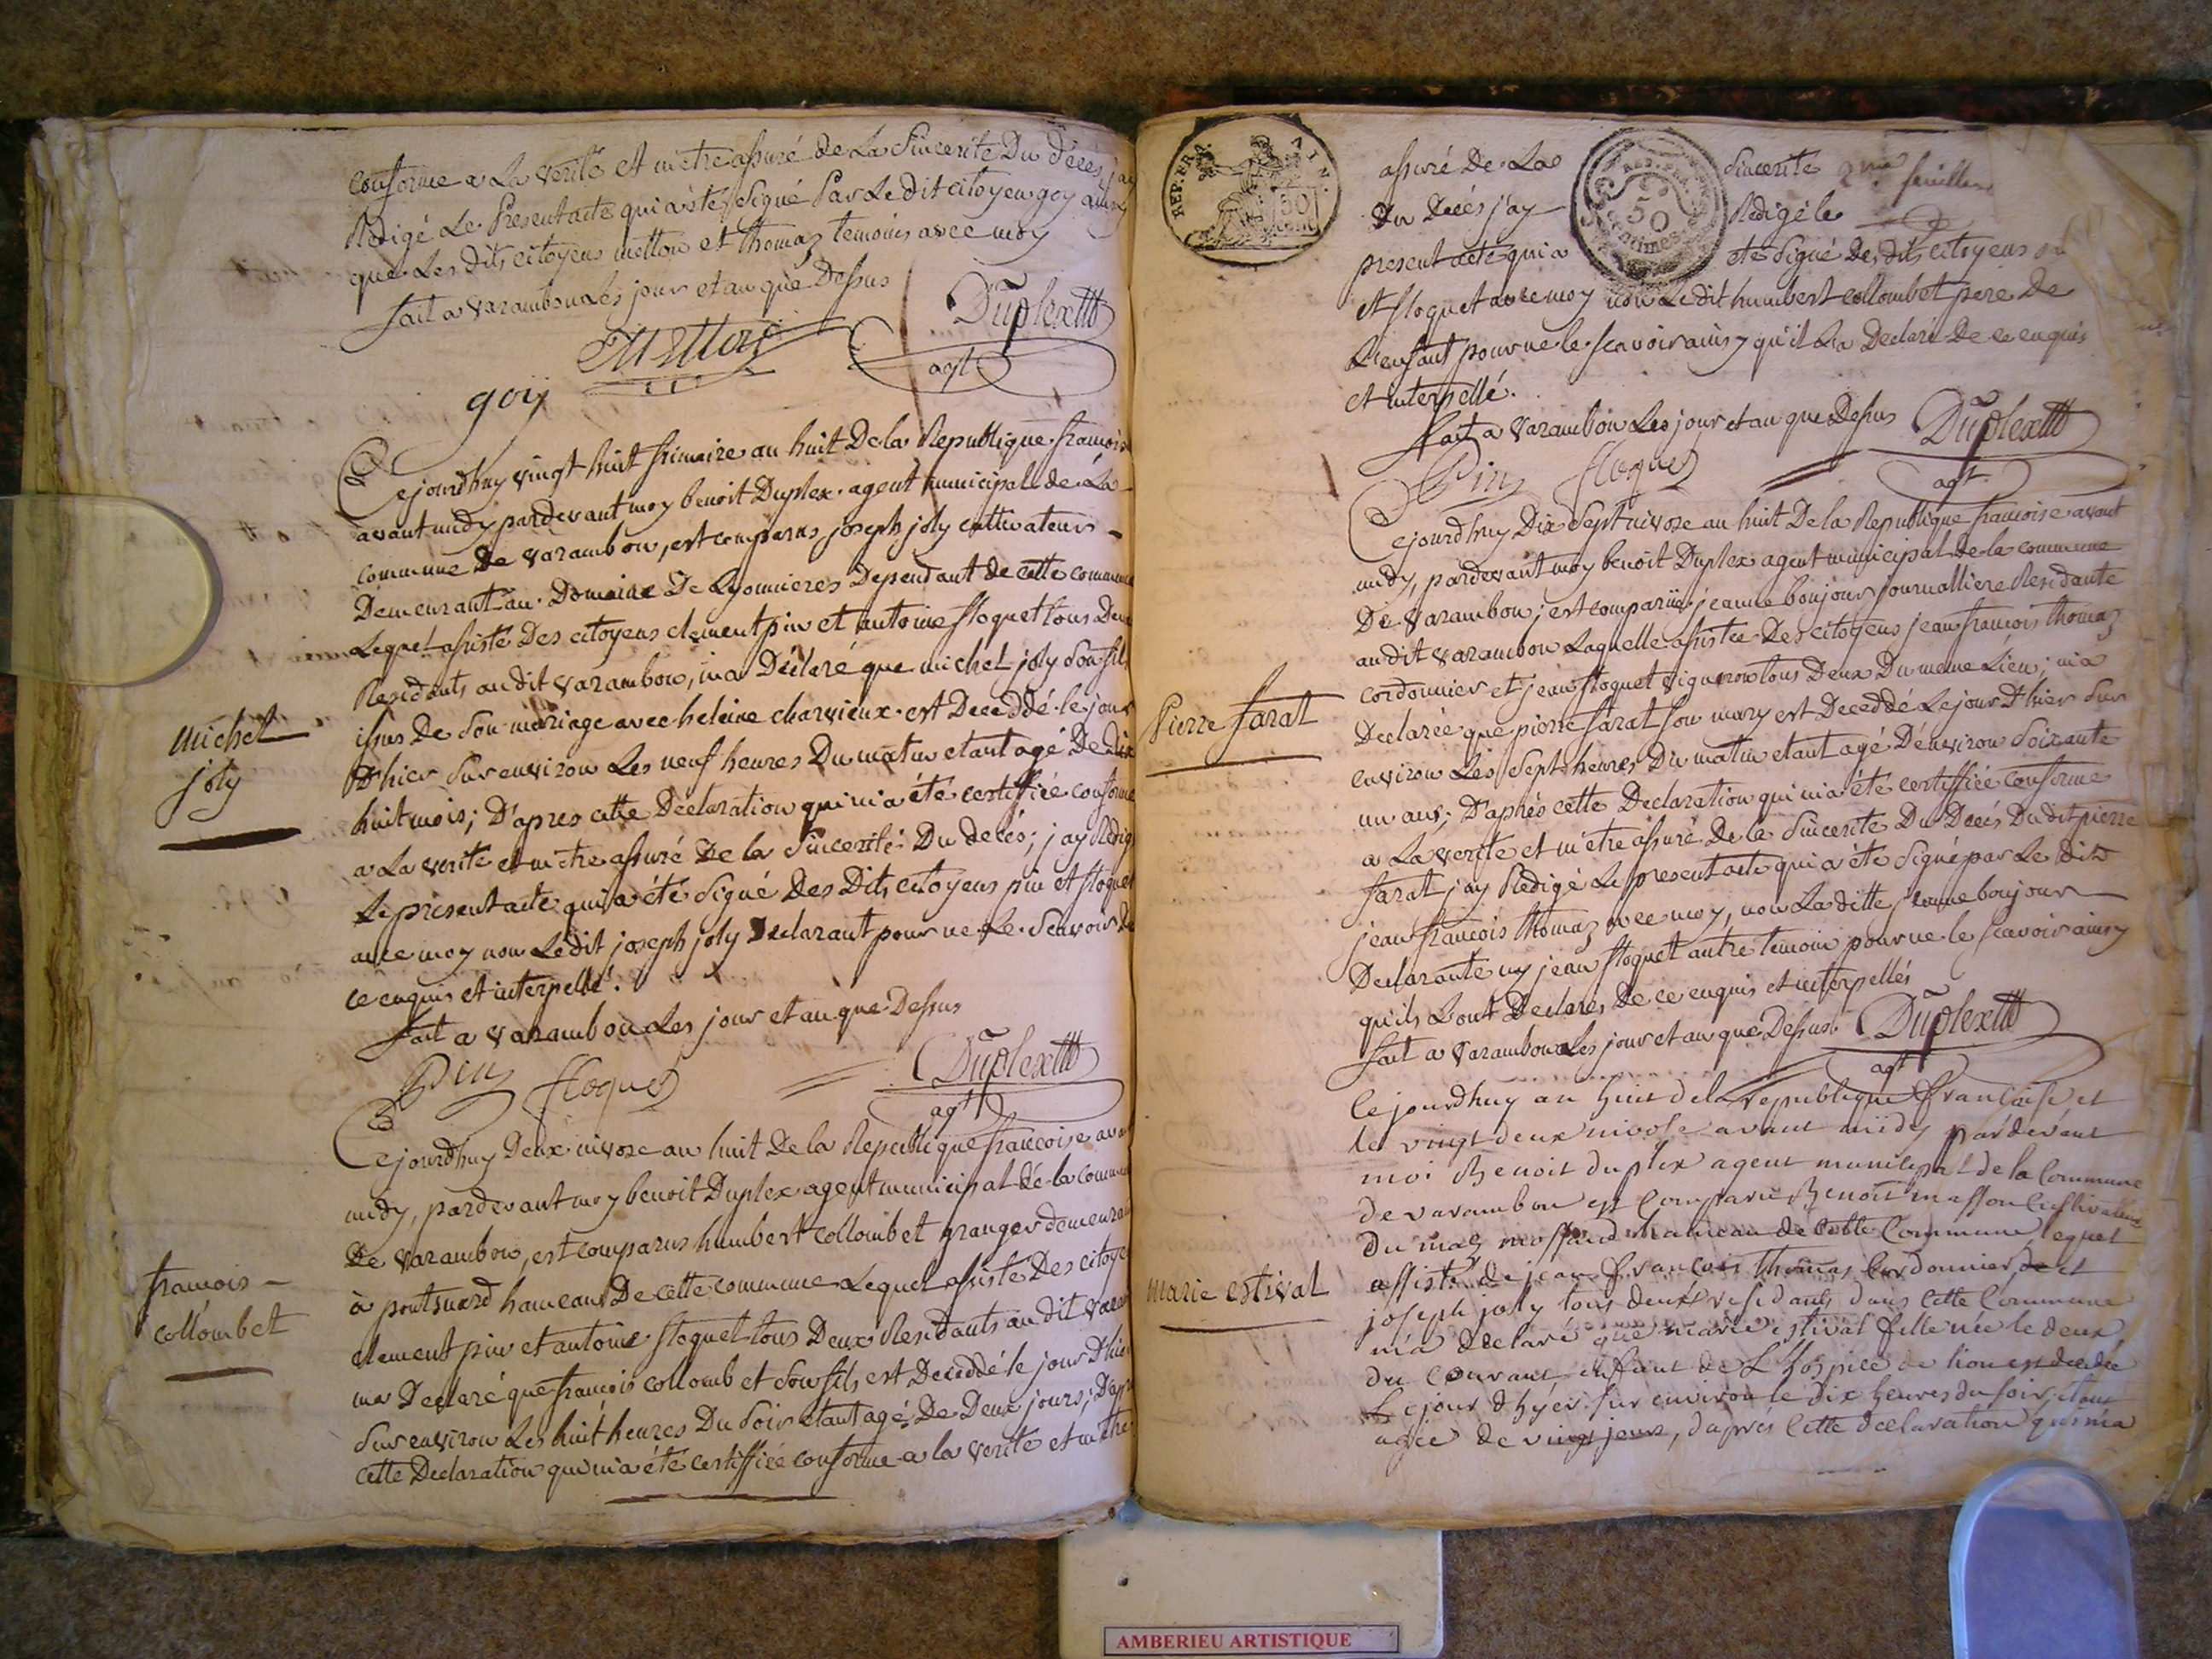 conforme a La verité et m'etre assuré de La Sincerité Du décès, jay
Redigé Le Present acte qui a été Signé Par Le dit citoyen goy ainsy
que Les dits citoyens metton et thomaz temoins avec moy
fait a varambon Les jour et an que Dessus
Duplex
agt
goy
Cejourdhuy vingt huit frimaire an huit De la Republique francoise
avant midy pardevant moy benoit Duplex agent municipal de La
commune De varambon, est comparus joseph joly cultivateur
Demeurant au Domaine De Lyonnieres Dependant de cette commune
Lequel assisté Des citoyens clement pin et antoine floquet tous Deux
Residants au dit varambon, m'a Déclaré que michel joly Son fils
issus De Son mariage avec heleine charvieux est Deceddé le jour
D'hier Sur environ Les neuf heures Du matin etant agé De dix
huit mois; D'apres cette Declaration qui m'a été certiffiée conforme
a La verité et m'etre assuré De la Sincerité Du decés; jay Redigé
Le present acte qui a été Signé Des Dits citoyens pin et floquet
avec moy non Ledit joseph joly Declarant pour ne Le Scavoir de
ce enquis et interpellé.
fait a varambon Les jour et an que Dessus
Pin floquet Duplex
agt
michel
joly
Cejourdhuy Deux nivose an huit De la Republique francoise avant
midy, pardevant moy benoit Duplex agent municipal de la commune
De varambon, est comparus humbert collombet granger demeurant
à pont suard hameau De cette commune Lequel assisté Des citoyens
clement pin et antoine floquet tous Deux Residants au dit varambon
ma Declaré que francois collombet Son fils est Deceddé le jour D'hier
Sur environ Les huit heures Du Soir etant agé De Deux jours; D'apres
cette Declaration qui m'a été certiffiée conforme a la verité et m'etre
francois
collombet
REP. FRA. AIN.
50
50
centimes
assuré De La Sincerité 2me feuillet
Du Decés j'ay Redigé le
present acte qui a eté Signé Des dits citoyens pin
et floquet avec moy non Le dit humbert collombet pere De
L'enfant pour ne le scavoir ainsy qu'il La Declaré De ce enquis
et interpellé.
fait a varambon Les jour et an que Dessus Duplex
agt
Pin floquet
Cejourdhuy Dix Sept nivose an huit De la Republique francoise avant
midy, pardevant moy benoit Duplex agent municipal de la commune
De varambon; est comparüe jeanne bonjour journalliere Residante
au dit varambon Laquelle assistée Des citoyens jean francois thomaz
cordonnier et jean floquet vigneron tous Deux Du meme Lieu; m'a
Declarée que pierre farat Son mary est Deceddé Le jour D'hier Sur
environ Les Sept heures Du matin etant agé D'environ Soixante
un ans; D'aprés cette Declaration qui m'a été certiffiée conforme
a La verité et m'étre assuré De la Sincerité Du Decés Du dit pierre
farat jay Redigé Le present acte qui a été Signé par Le dit
jean francois thomaz avec moy, non La ditte jeanne bonjour
Declarante ny jean floquet autre temoin pour ne le scavoir ainsy
qu'ils L'ont Declarés De ce enquis et interpellés
fait a varambon Les jour et an que Dessus. Duplex
agt
Pierre farat
Cejourdhuy an huit de la republique francaise et
le vingt deux nivose avant midy pardevant
moi Benoit duplex agent municipal de la Commune
de varambon est Comparu Benoit masson Cultivateur
du maz hameau de Cette Commune, lequel
assisté de jean francois thomas cordonnier et
joseph jolly tous deux residants dans Cette Commune
m'a declaré que marie estival fille née le deux
du Courant, enfant de L'hospice de lion est decedée
Le jour d'hyer sur environ le dix heures du soir, etant
agée de vingt jours, d'apres Cette declaration qui m'a
marie estival
AMBERIEU ARTISTIQUE